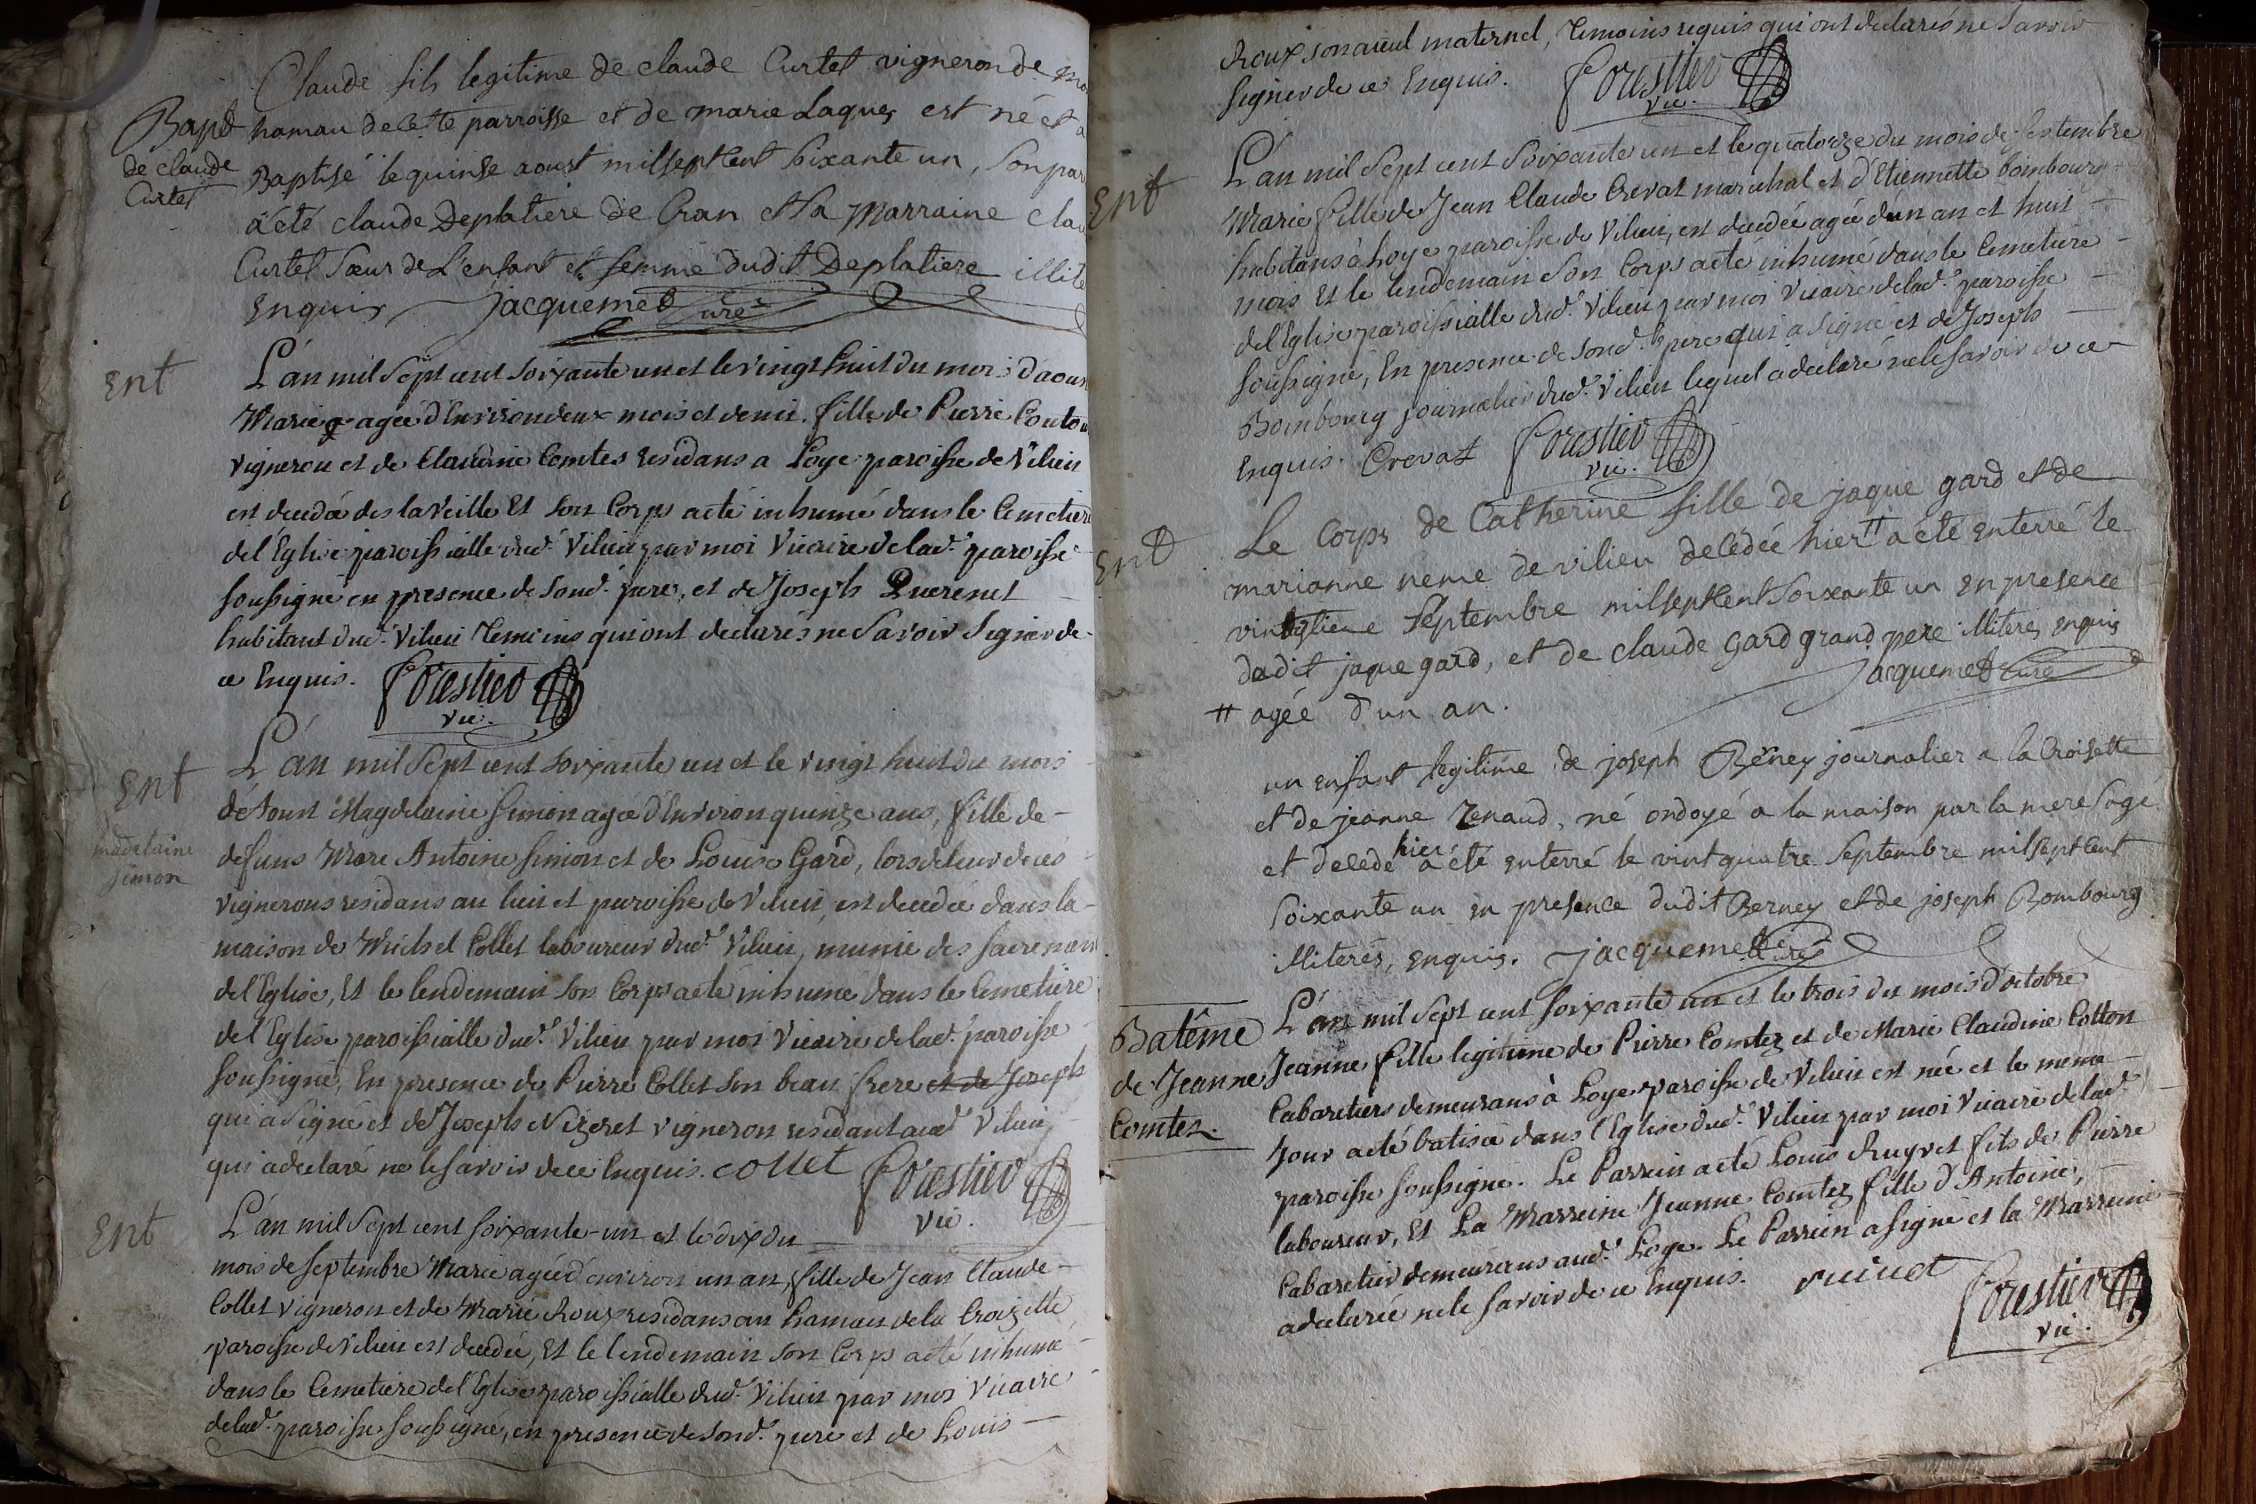 Claude fils legitime de claude Curtet vigneron de
Bapt
de claude
Curtet
hamau de cette parroisse et de marie Laques est né et a
Baptisé le quinse aoust mil sept Cent soixante un, son par
a été claude Deplatiere de Cran et la Marraine clau
Curtet sœur de L'enfant et femme dudit Deplatiere illite
Enquis jacquemet Curé
Ent
L'an mil Sept cent Soixante un et le vingt huit du mois d'aous
Marie agée d'Environ deux mois et demi. fille de Pierre Couton
vigneron et de Claudine Comtes residans a Loye paroisse de Vilieu
est decedée des la veille Et son Corps a eté inhumé dans le Cemetiere
de l'Eglise paroissialle dud. Vilieu par moi Vicaire de lad. paroisse
soussigné en presence de Sond. pere, et de Joseph Querenet
habitant dud. Vilieu temoins qui ont declarés ne Savoir Signer de
ce Enquis. Forestier
vic.
Ent
madelaine
simon
L'an mil Sept cent soixante un et le vingt huit du mois
d'Aoust Magdelaine Simon agée d'Environ quinze ans, fille de
defuns Marc Antoine Simon et de Louise Gard, lors de leur deces
vignerons residans au lieu et paroisse de Vilieu, est decedée dans la
maison de Michel Collet laboureur dud. Vilieu, munie des sacremen
de l'Eglise, Et le lendemain son Corps a eté inhumé dans le Cemetiere
de l'Eglise paroissialle dud. Vilieu par moi Vicaire de lad. paroisse
soussigné, En presence de Pierre Collet son beau frere et de Joseph
qui a Signé et de Joseph Nizeret vigneron residant aud. Vilieu
qui a declaré ne le savoir de ce Enquis. collet Forestier
vic.
Ent
L'an mil Sept cent soixante-un et le dix du
mois de septembre Marie agée d'environ un an, fille de Jean Claude
Collet vigneron et de Marie Roux residans au hamau de la Croizette
paroisse de Vilieu est decedée, Et le lendemain son Corps a eté inhumé
dans le Cemetiere de l'Eglise paroissialle dud. Vilieu par moi Vicaire
de lad. paroisse soussigné, en presence de sond. pere et de Louis
Roux son aieul maternel, temoins requis qui ont declarés ne Savoir
signer de ce Enquis. Forestier
vic.
Ent
L'an mil Sept cent Soixante un et le quatorze du mois de septembre
Marie fille de Jean Claude Crevat marechal et d'Etiennette bombourg
habitans à Loye paroisse de Vilieu, est decedée agée d'un an et huit
mois Et le lendemain son Corps a eté inhumé dans le Cemetiere
de l'Eglise paroissialle dud. Vilieu par moi Vicaire de lad. paroisse
soussigné, En presence de sond. pere qui a signé et de Joseph
Bombourg journalier dud. Vilieu lequel a declaré ne le savoir de ce
Enquis. Crevat Forestier
vic.
Ent
Le Corps de Catherine fille de jaque gard et de
marianne neme de vilieu decédée hier # a été enterré le
Septembre mil sept Cent Soixante un en presence
dudit jaque gard, et de claude Gard grand pere illiterés enquis
Jacquemet Curé
# agée d'un an.
un enfant legitime de joseph Berney journalier a la Croisette
et de jeanne Renaud, né ondoyé a la maison par la mere sage
et decedé hier a été enterré le vint quatre Septembre mil sept Cent
soixante un en presence dudit Berney et de joseph Bombourg
illiterés, enquis. jacquemet Curé
Batême
de Jeanne
Comtes.
L'an mil Sept cent soixante un et le trois du mois d'octobre
Jeanne fille legitime de Pierre Comtez et de Marie Claudine Cotton
Cabaretiers demeurans à Loye paroisse de Vilieu est née et le meme
jour a eté batisée dans l'Eglise dud. Vilieu par moi Vicaire de lad.
paroisse soussigné. Le Parrein a eté Louis Ruyret fils de Pierre
laboureur, Et La Marreine Jeanne Comtez fille d'Antoine,
Cabaretier demeurans aud. Loye. Le Parrein a signé et la Marreine
a declarée ne le savoir de ce Enquis. Forestier
vic.